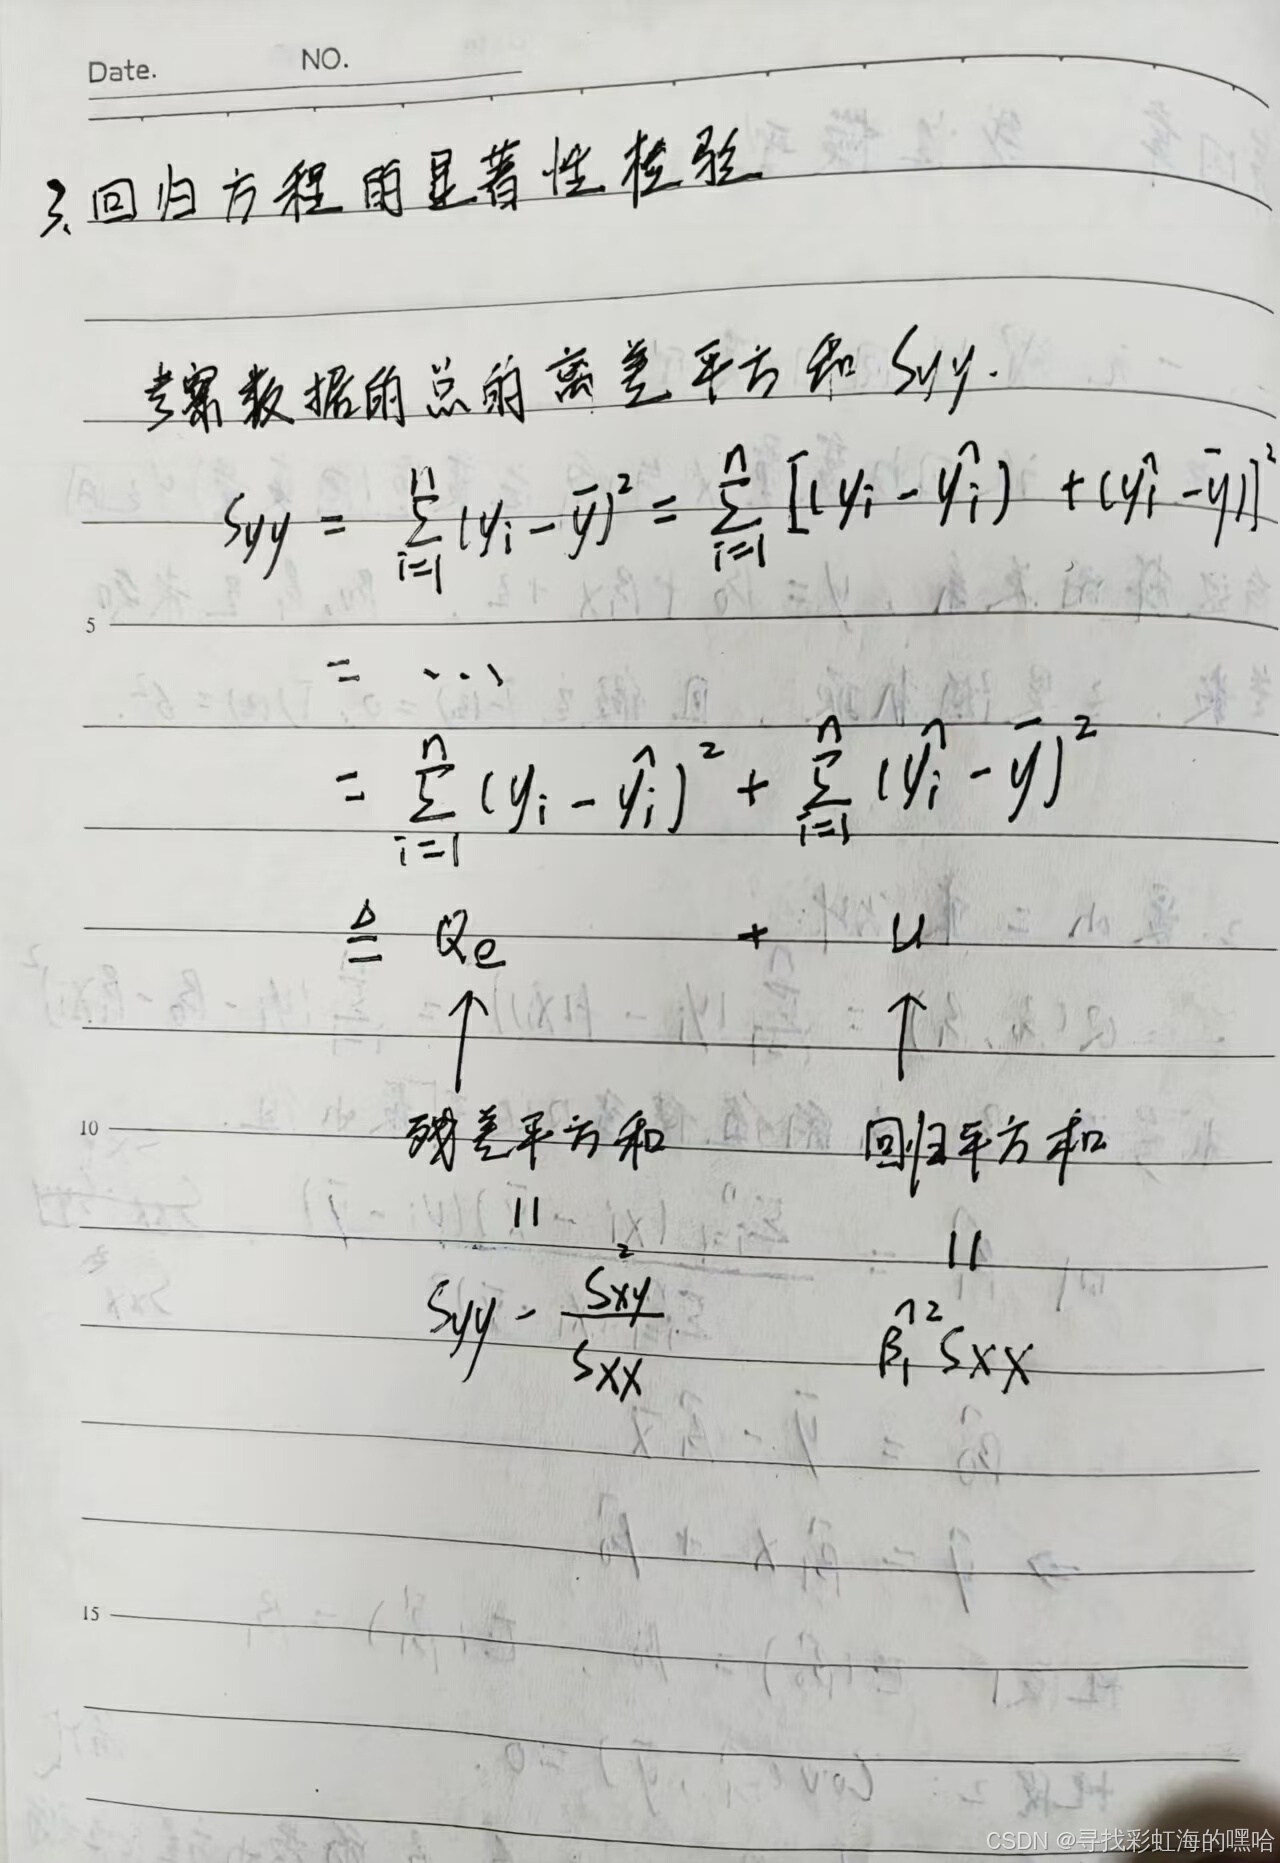 Date. NO.
3、回归方程的显著性检验
考察数据的总的离差平方和 Syy.
Syy = Σ_{i=1}^{n} (yi - ȳ)² = Σ_{i=1}^{n} [(yi - ŷi) + (ŷi - ȳ)]²
5
= ...
= Σ_{i=1}^{n} (yi - ŷi)² + Σ_{i=1}^{n} (ŷi - ȳ)²
≜ Qe + U
↑ ↑
10
残差平方和 回归平方和
|| ||
Syy - Sxy²/Sxx β̂₁² Sxx
15
CSDN @寻找彩虹海的嘿哈